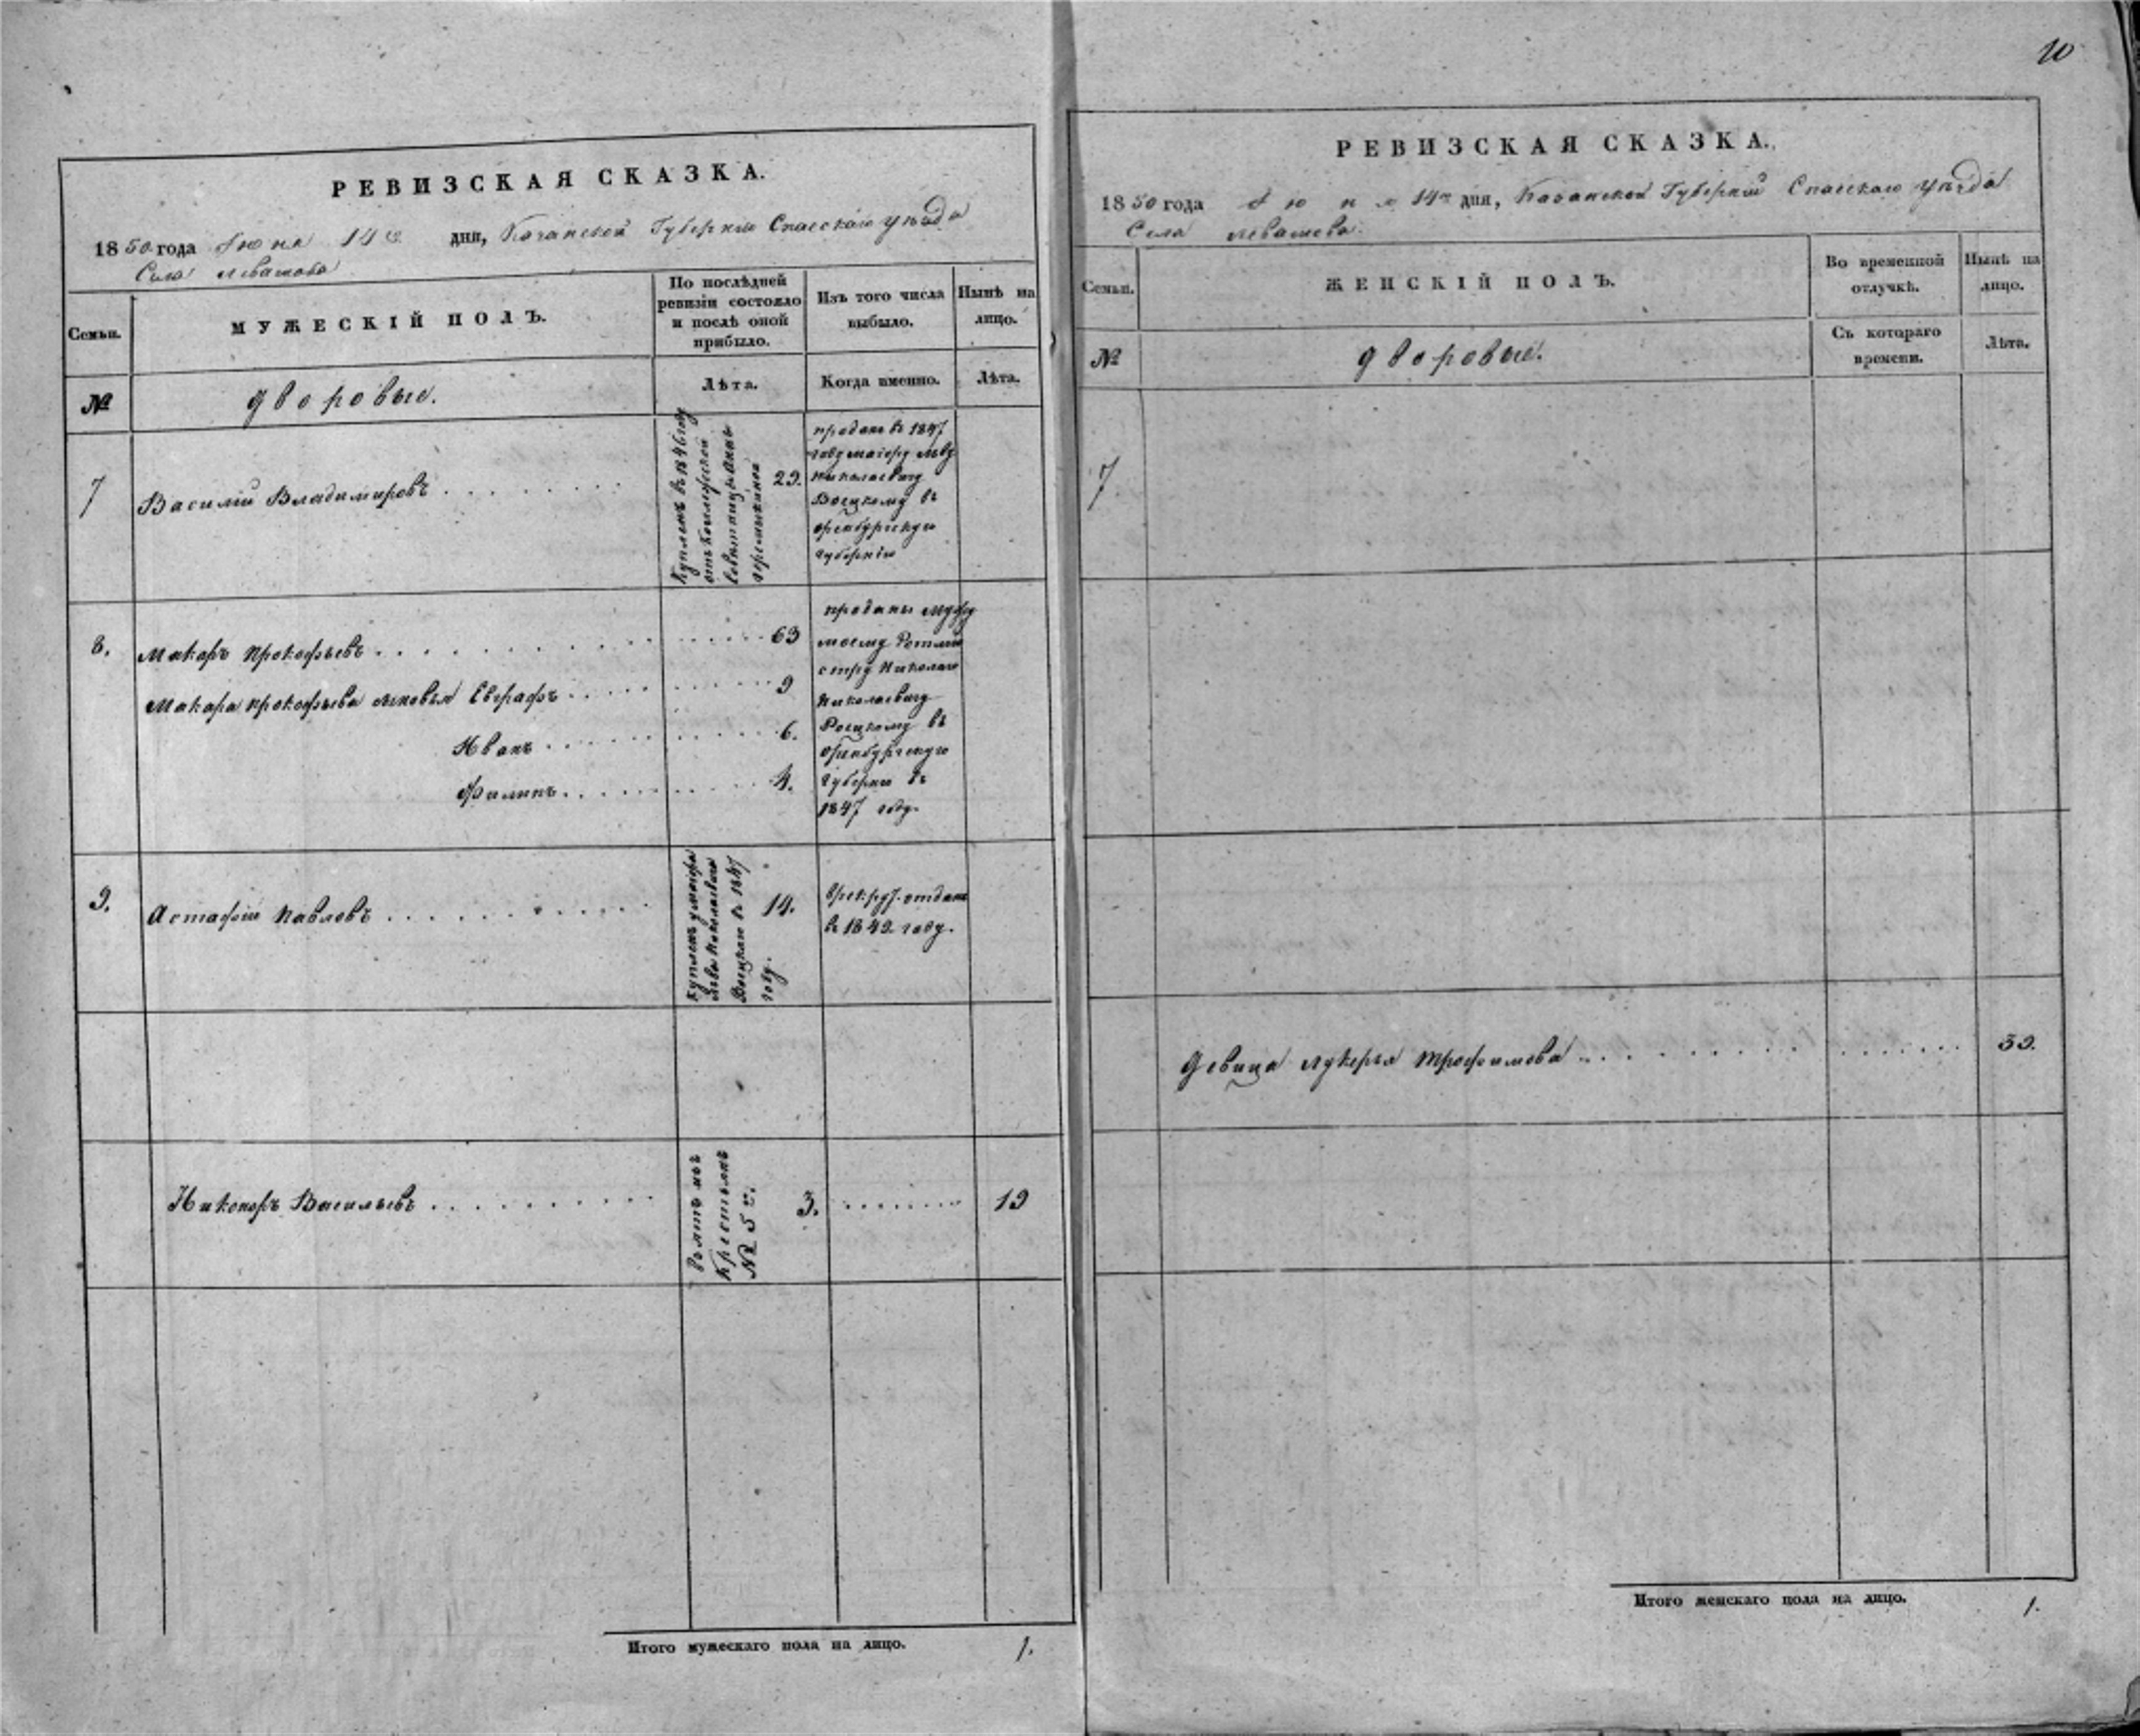 РЕВИЗСКАЯ СКАЗКА.
1850 года Июня 14го дня, Казанской Губернiи Спасскаго уѣзда
Села Левашева
Семьи.
МУЖЕСКIЙ ПОЛЪ.
По послѣдней
ревизiи состояло
и послѣ оной
прибыло.
Изъ того числа
выбыло.
Нынѣ на
лицо.
№
дворовые.
Лѣта.
Когда именно.
Лѣта.
7
Василiй Владимировъ
Купленъ въ 1846 году
отъ Коллежской
Советницы Анны
29.
проданъ въ 1847
году маiору Льву
Николаевичу
въ
оренбургскую
губернiю
8.
Макаръ Прокофьевъ
63
Макара Прокофьева сыновья Евграфъ
9
Иванъ
6.
Филипъ
4.
проданы мужу
моему Ротми
стру Николаю
Николаевичу
въ
оренбургскую
губернiю въ
1847 году.
9.
Астафiй Павловъ
Купленъ у маiора
Льва Николаевича
въ 1847
году.
14.
въ рекруты отданъ
въ 1849 году.
Никоноръ Васильевъ
Взятъ изъ
крестьянъ
№ 5го.
3.
19
Итого мужескаго пола на лицо.
1.
10
РЕВИЗСКАЯ СКАЗКА.
1850 года Июня 14го дня, Казанской Губернiи Спасскаго уѣзда
Села Левашева.
Семьи.
ЖЕНСКIЙ ПОЛЪ.
Во временной
отлучкѣ.
Нынѣ на
лицо.
№
дворовые.
Съ котораго
времени.
Лѣта.
7.
Девица Лукерья Трофимова
39.
Итого женскаго пола на лицо.
1.